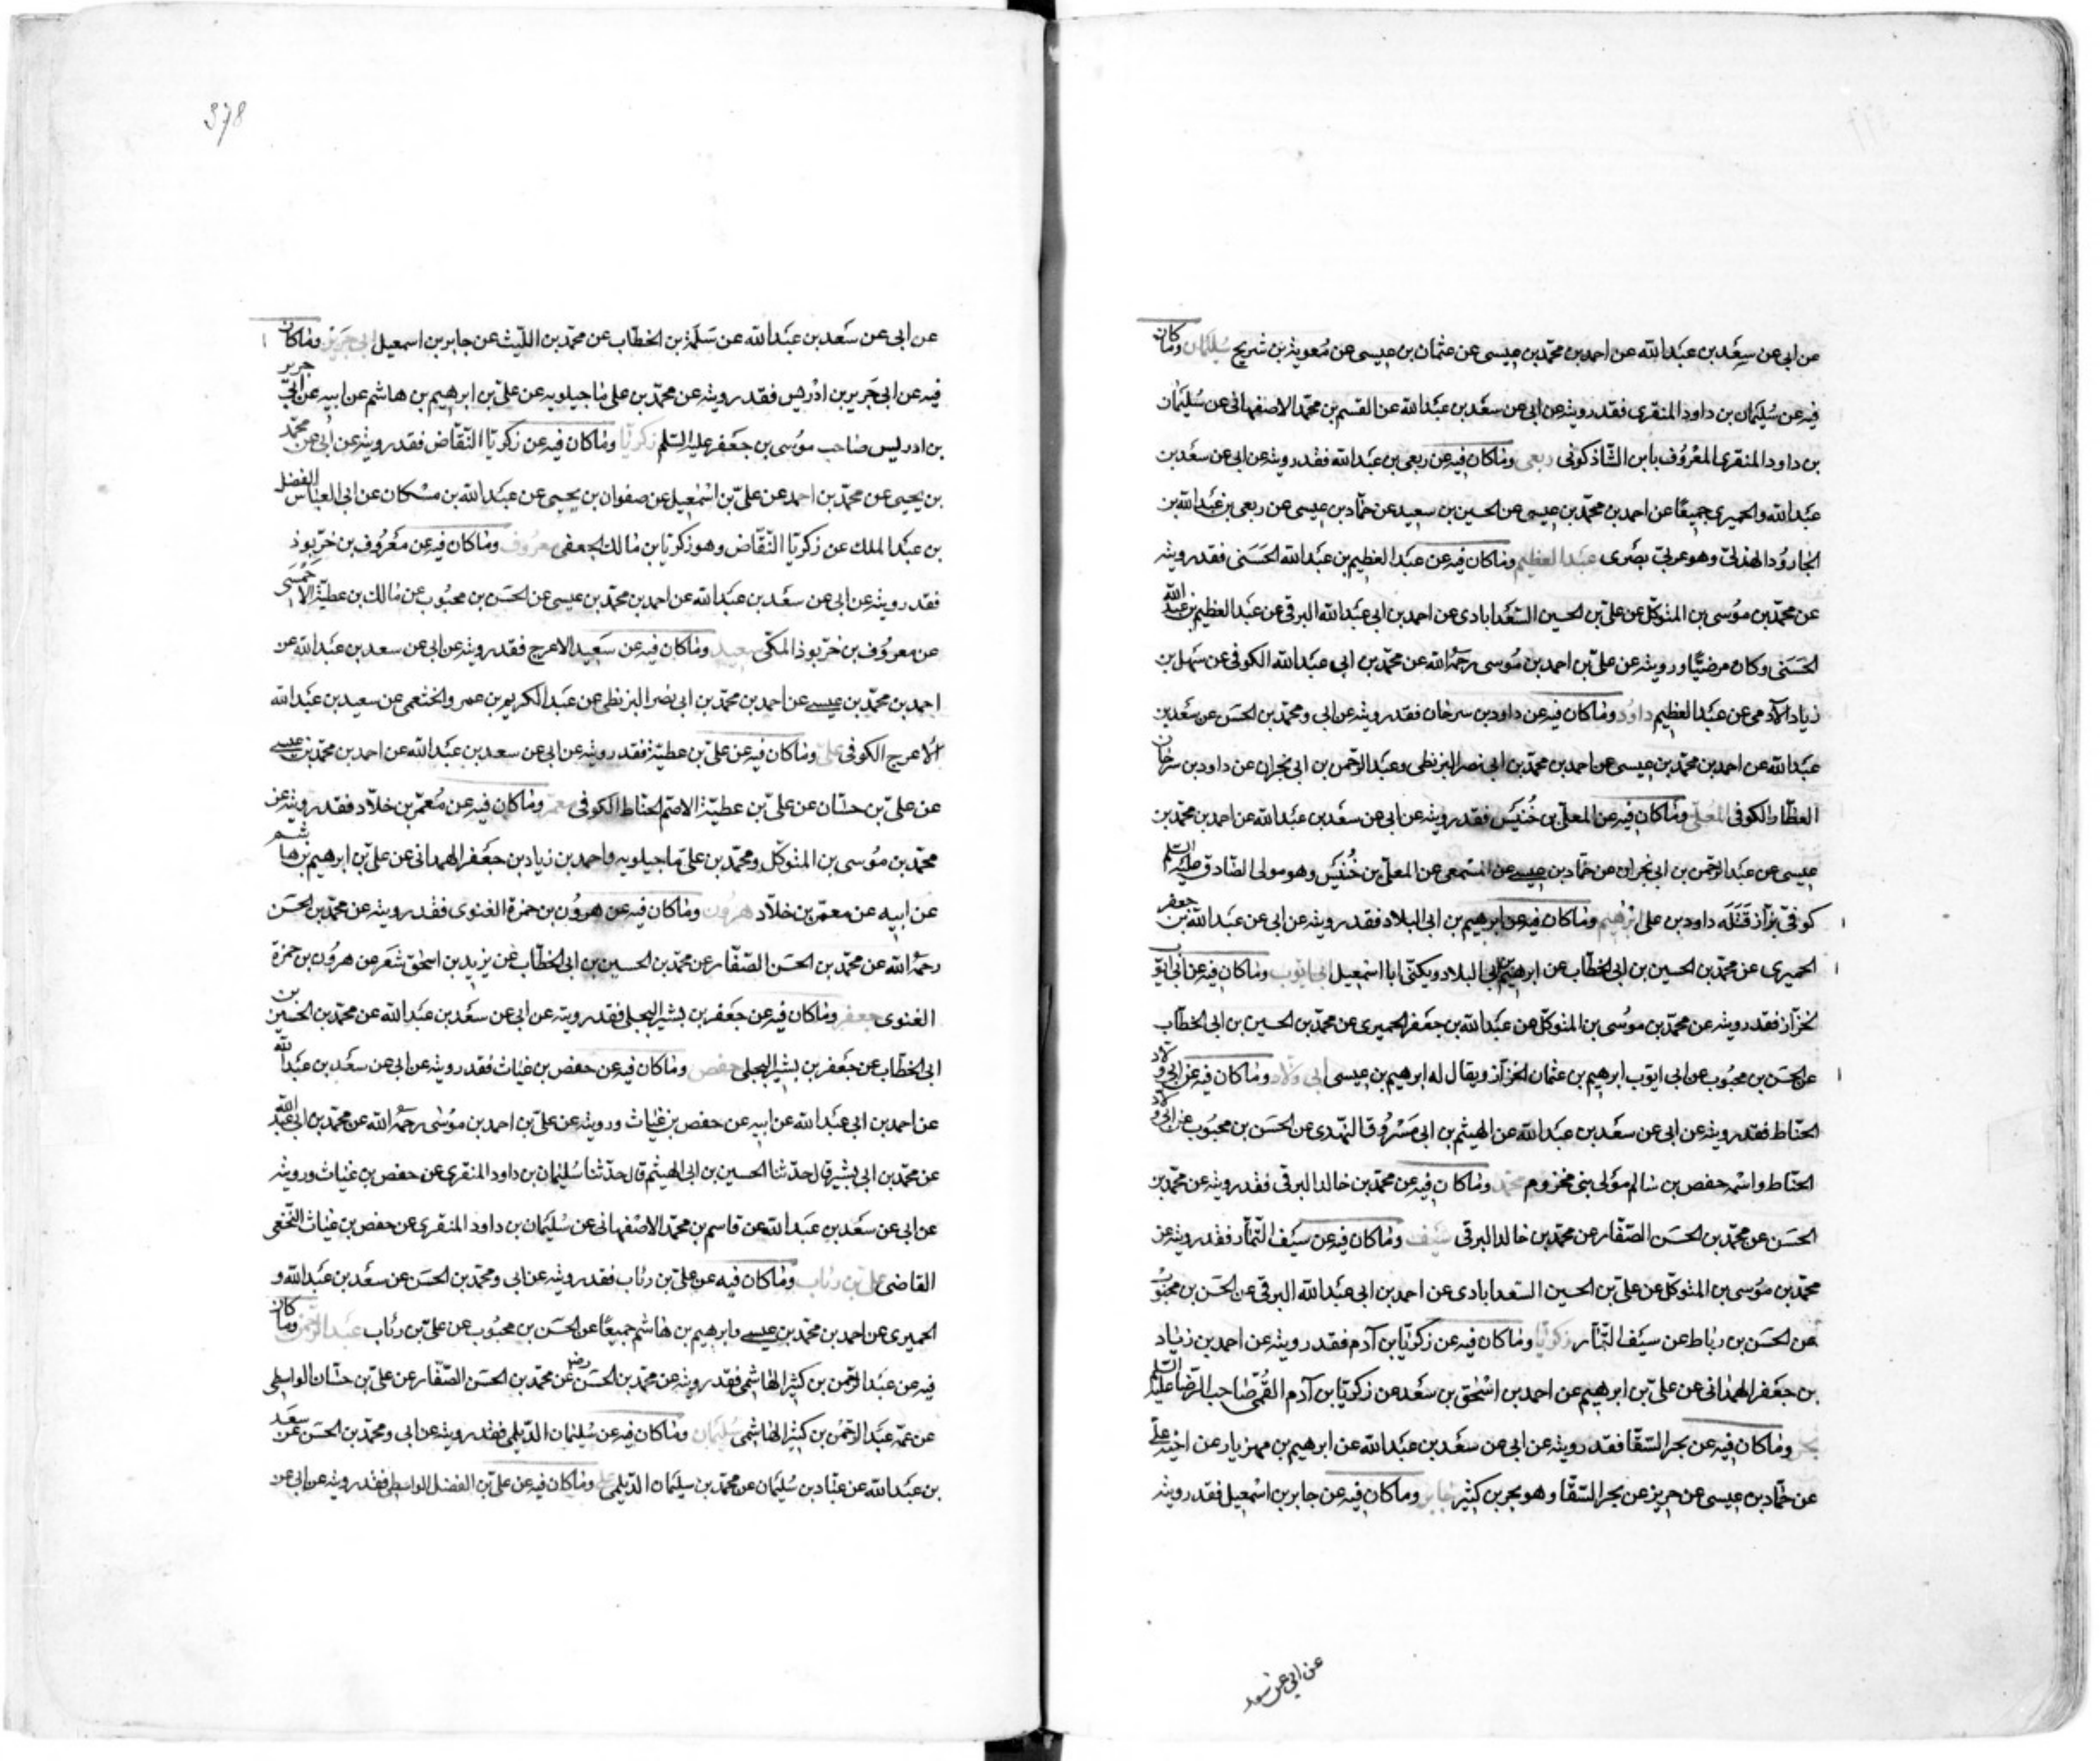 عن ابى عن سعد بن عبد الله عن احمد بن محمد بن عيسى عن عثمان بن عيسى عن معوية بن شريح سليمان وما كان
فيه عن سليمان بن داود المنقرى فقد رويته عن ابى عن سعد بن عبد الله عن القسم بن محمد الاصفهانى عن سليمان
بن داود المنقرى المعروف بابن الشاذكونى ربعى وما كان فيه عن ربعى بن عبد الله فقد رويته عن ابى عن سعد بن
عبد الله والحميرى جميعا عن احمد بن محمد بن عيسى عن الحسين بن سعيد عن حماد بن عيسى عن ربعى بن عبد الله بن
الجارود الهذلى وهو عربى بصرى عبد العظيم وما كان فيه عن عبد العظيم بن عبد الله الحسنى فقد رويته
عن محمد بن موسى بن المتوكل عن على بن الحسين السعدابادى عن احمد بن ابى عبد الله البرقى عن عبد العظيم بن عبد الله
الحسنى وكان مرضيا ورويته عن على بن احمد بن موسى رحمه الله عن محمد بن ابى عبد الله الكوفى عن سهل بن
زياد الآدمى عن عبد العظيم داود وما كان فيه عن داود بن سرحان فقد رويته عن ابى ومحمد بن الحسن عن سعد بن
عبد الله عن احمد بن محمد بن عيسى عن احمد بن محمد بن ابى نصر البزنطى وعبد الرحمن بن ابى نجران عن داود بن سرحان
العطار الكوفى المعلى وما كان فيه عن المعلى بن خنيس فقد رويته عن ابى عن سعد بن عبد الله عن احمد بن محمد بن
عيسى عن عبد الرحمن بن ابى نجران عن حماد بن عيسى عن المسمعى عن المعلى بن خنيس وهو مولى الصادق عليه السلم
كوفى بزاز قتله داود بن على ابرهيم وما كان فيه عن ابرهيم بن ابى البلاد فقد رويته عن ابى عن عبد الله بن جعفر
الحميرى عن محمد بن الحسين بن ابى الخطاب عن ابرهيم بن ابى البلاد ويكنى ابا اسمعيل ابى ايوب وما كان فيه عن ابى ايوب
الخزاز فقد رويته عن محمد بن موسى بن المتوكل عن عبد الله بن جعفر الحميرى عن محمد بن الحسين بن ابى الخطاب
عن الحسن بن محبوب عن ابى ايوب ابرهيم بن عثمان الخزاز ويقال له ابرهيم بن عيسى ابى ولاد وما كان فيه عن ابى ولاد
الحناط فقد رويته عن ابى عن سعد بن عبد الله عن الهيثم بن ابى مسروق النهدى عن الحسن بن محبوب عن ابى ولاد
الحناط واسمه حفص بن سالم مولى بنى مخزوم محمد وما كان فيه عن محمد بن خالد البرقى فقد رويته عن محمد بن
الحسن عن محمد بن الحسن الصفار عن محمد بن خالد البرقى سيف وما كان فيه عن سيف التمار فقد رويته عن
محمد بن موسى بن المتوكل عن على بن الحسين السعدابادى عن احمد بن ابى عبد الله البرقى عن الحسن بن محبوب
عن الحسن بن رباط عن سيف التمار زكريا وما كان فيه عن زكريا بن آدم فقد رويته عن احمد بن زياد
بن جعفر الهمدانى عن على بن ابرهيم عن احمد بن اسحق بن سعد عن زكريا بن آدم القمى صاحب الرضا عليه السلم
بحر وما كان فيه عن بحر السقا فقد رويته عن ابى عن سعد بن عبد الله عن ابرهيم بن مهزيار عن اخيه على
عن حماد بن عيسى عن حريز عن بحر السقا وهو بحر بن كثير جابر وما كان فيه عن جابر بن اسمعيل فقد رويته
عن ابى عن سعد
378
عن ابى عن سعد بن عبد الله عن سلمة بن الخطاب عن محمد بن الليث عن جابر بن اسمعيل ابى جرير وما كان
فيه عن ابى جرير بن ادريس فقد رويته عن محمد بن على ماجيلويه عن على بن ابرهيم بن هاشم عن ابيه عن ابى جرير
بن ادريس صاحب موسى بن جعفر عليه السلم زكريا وما كان فيه عن زكريا النقاض فقد رويته عن ابى عن محمد
بن يحيى عن محمد بن احمد عن على بن اسمعيل عن صفوان بن يحيى عن عبد الله بن مسكان عن ابى العباس الفضل
بن عبد الملك عن زكريا النقاض وهو زكريا بن مالك الجعفى معروف وما كان فيه عن معروف بن خربوذ
فقد رويته عن ابى عن سعد بن عبد الله عن احمد بن محمد بن عيسى عن الحسن بن محبوب عن مالك بن عطية الاحمسى
عن معروف بن خربوذ المكى سعيد وما كان فيه عن سعيد الاعرج فقد رويته عن ابى عن سعد بن عبد الله عن
احمد بن محمد بن عيسى عن احمد بن محمد بن ابى نصر البزنطى عن عبد الكريم بن عمرو الخثعمى عن سعيد بن عبد الله
الاعرج الكوفى على وما كان فيه عن على بن عطية فقد رويته عن ابى عن سعد بن عبد الله عن احمد بن محمد بن عيسى
عن على بن حسان عن على بن عطية الاصم الحناط الكوفى معمر وما كان فيه عن معمر بن خلاد فقد رويته عن
محمد بن موسى بن المتوكل ومحمد بن على ماجيلويه واحمد بن زياد بن جعفر الهمدانى عن على بن ابرهيم بن هاشم
عن ابيه عن معمر بن خلاد هرون وما كان فيه عن هرون بن حمزة الغنوى فقد رويته عن محمد بن الحسن
رحمه الله عن محمد بن الحسن الصفار عن محمد بن الحسين بن ابى الخطاب عن يزيد بن اسحق شعر عن هرون بن حمزة
الغنوى جعفر وما كان فيه عن جعفر بن بشير البجلى فقد رويته عن ابى عن سعد بن عبد الله عن محمد بن الحسين بن
ابى الخطاب عن جعفر بن بشير البجلى حفص وما كان فيه عن حفص بن غياث فقد رويته عن ابى عن سعد بن عبد الله
عن احمد بن ابى عبد الله عن ابيه عن حفص بن غياث ورويته عن على بن احمد بن موسى رحمه الله عن محمد بن ابى عبد الله
عن محمد بن ابى بشير قال حدثنا الحسين بن ابى الهيثم قال حدثنا سليمان بن داود المنقرى عن حفص بن غياث ورويته
عن ابى عن سعد بن عبد الله عن قاسم بن محمد الاصفهانى عن سليمان بن داود المنقرى عن حفص بن غياث النخعى
القاضى على بن رئاب وما كان فيه عن على بن رئاب فقد رويته عن ابى ومحمد بن الحسن عن سعد بن عبد الله و
الحميرى عن احمد بن محمد بن عيسى وابرهيم بن هاشم جميعا عن الحسن بن محبوب عن على بن رئاب عبد الرحمن وما كان
فيه عن عبد الرحمن بن كثير الهاشمى فقد رويته عن محمد بن الحسن رضه عن محمد بن الحسن الصفار عن على بن حسان الواسطى
عن عمه عبد الرحمن بن كثير الهاشمى سليمان وما كان فيه عن سليمان الديلمى فقد رويته عن ابى ومحمد بن الحسن عن سعد
بن عبد الله عن عباد بن سليمان عن محمد بن سليمان الديلمى على وما كان فيه عن على بن الفضل الواسطى فقد رويته عن ابى عن